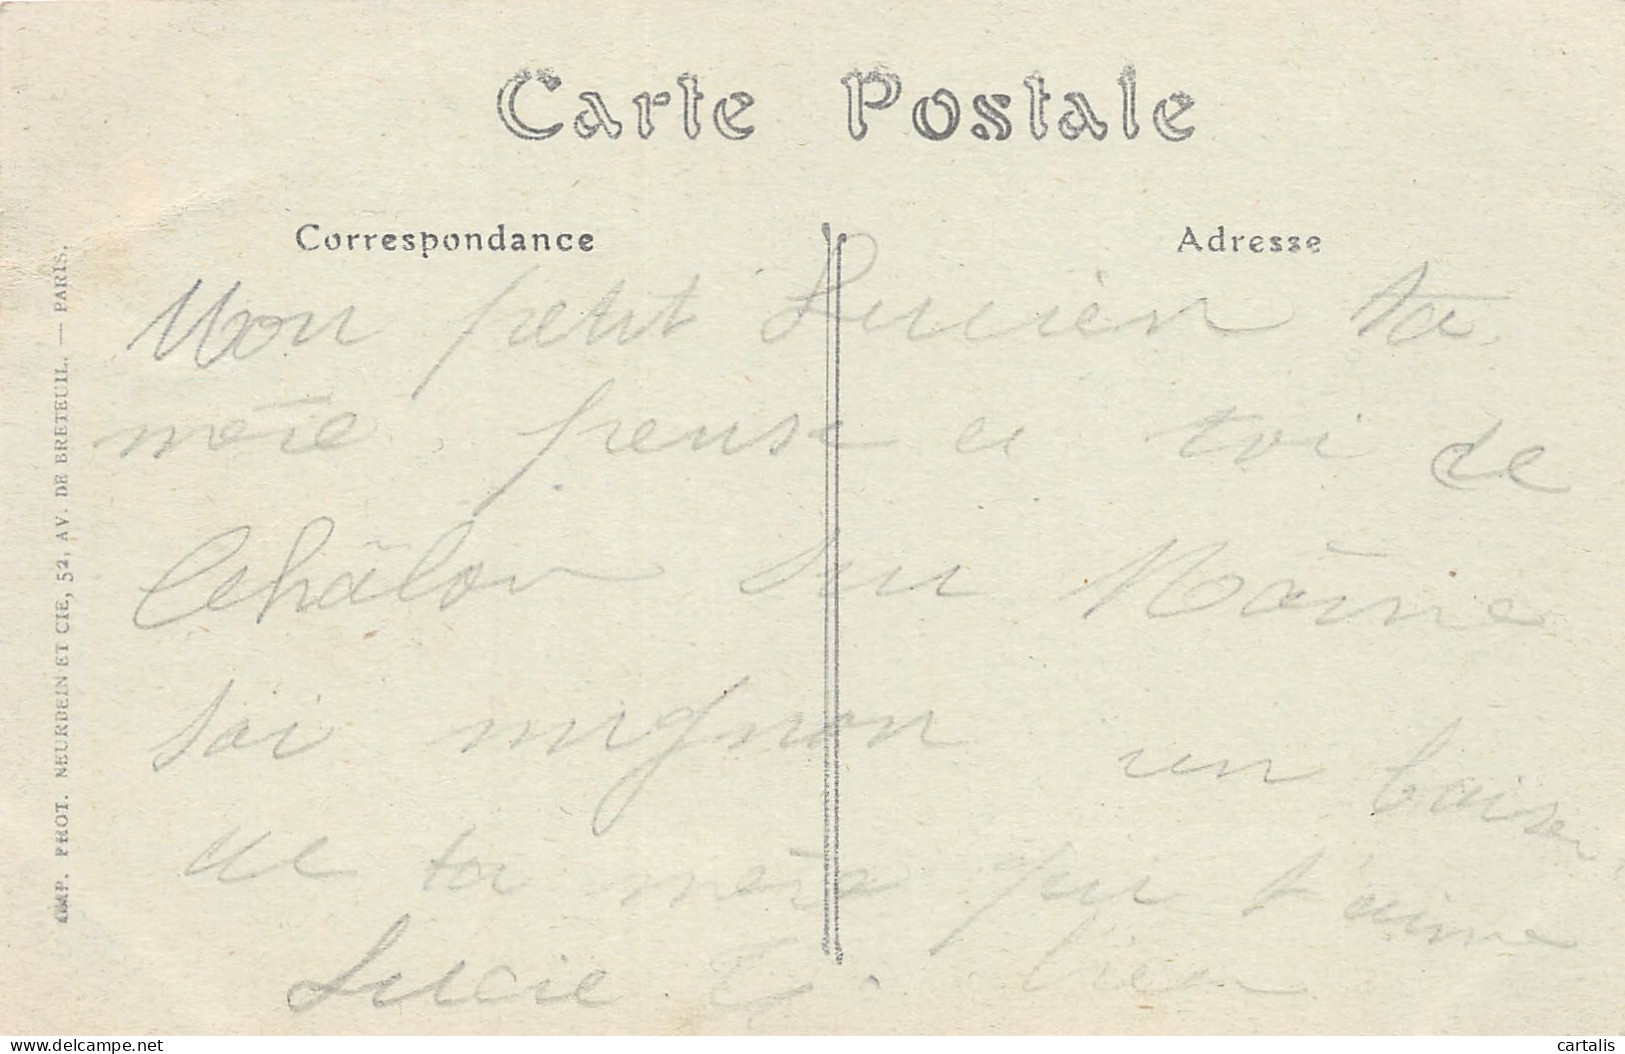 Carte Postale
Correspondance
Adresse
Mon petit Lucien ta
mère pense a toi de
Châlon sur Marne
soi mignon un baiser
de ta mère qui t'aime
Lucie bien
IMP. PHOT. NEURDEIN ET CIE, 52, AV. DE BRETEUIL. — PARIS.
delcampe.net
cartalis